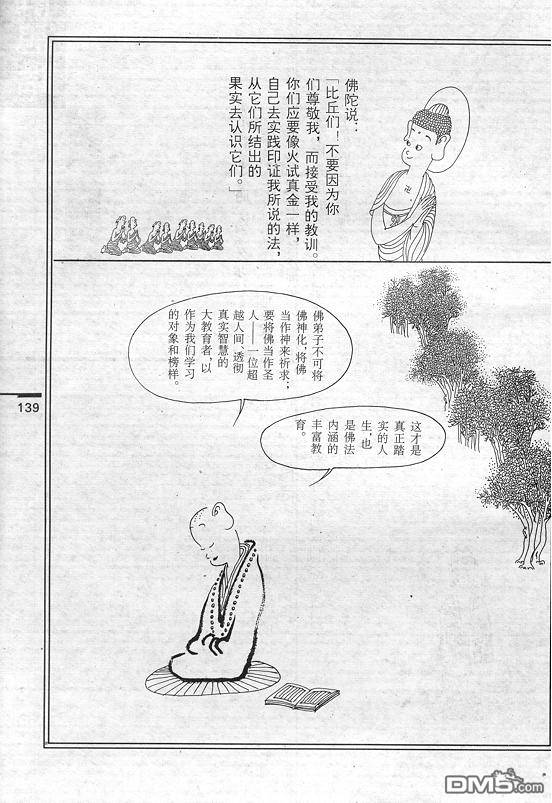 佛陀说：
「比丘们！不要因为你
们尊敬我，而接受我的教训。
你们应要像火试真金一样，
自己去实践印证我所说的法，
从它们所结出的
果实去认识它们。」
佛弟子不可将
佛神化，将佛
当作神来祈求；
要将佛当作圣
人——一位超
越人间、透彻
真实智慧的
大教育者，以
作为我们学习
的对象和榜样。
这才是
真正踏
实的人
生，也
是佛法
内涵的
丰富教
育。
139
卍
DM5.com